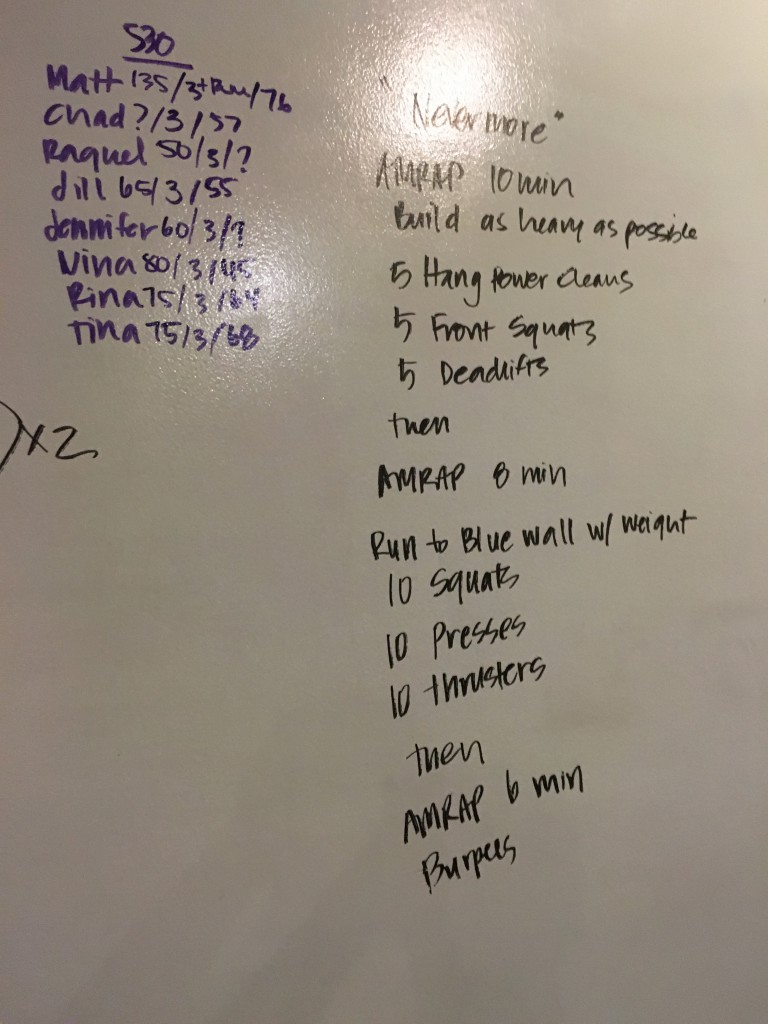 530
Matt 135/3+Run/76
Chad ?/3/57
Raquel 50/3/?
dill 65/3/55
Jennifer 60/3/?
Vina 80/3/45
Rina 75/3/64
Tina 75/3/68
)x2
"Nevermore"
AMRAP 10 min
Build as heavy as possible
5 Hang Power cleans
5 Front Squats
5 Deadlifts
then
AMRAP 8 min
Run to Blue wall w/ weight
10 Squats
10 Presses
10 thrusters
then
AMRAP 6 min
Burpees